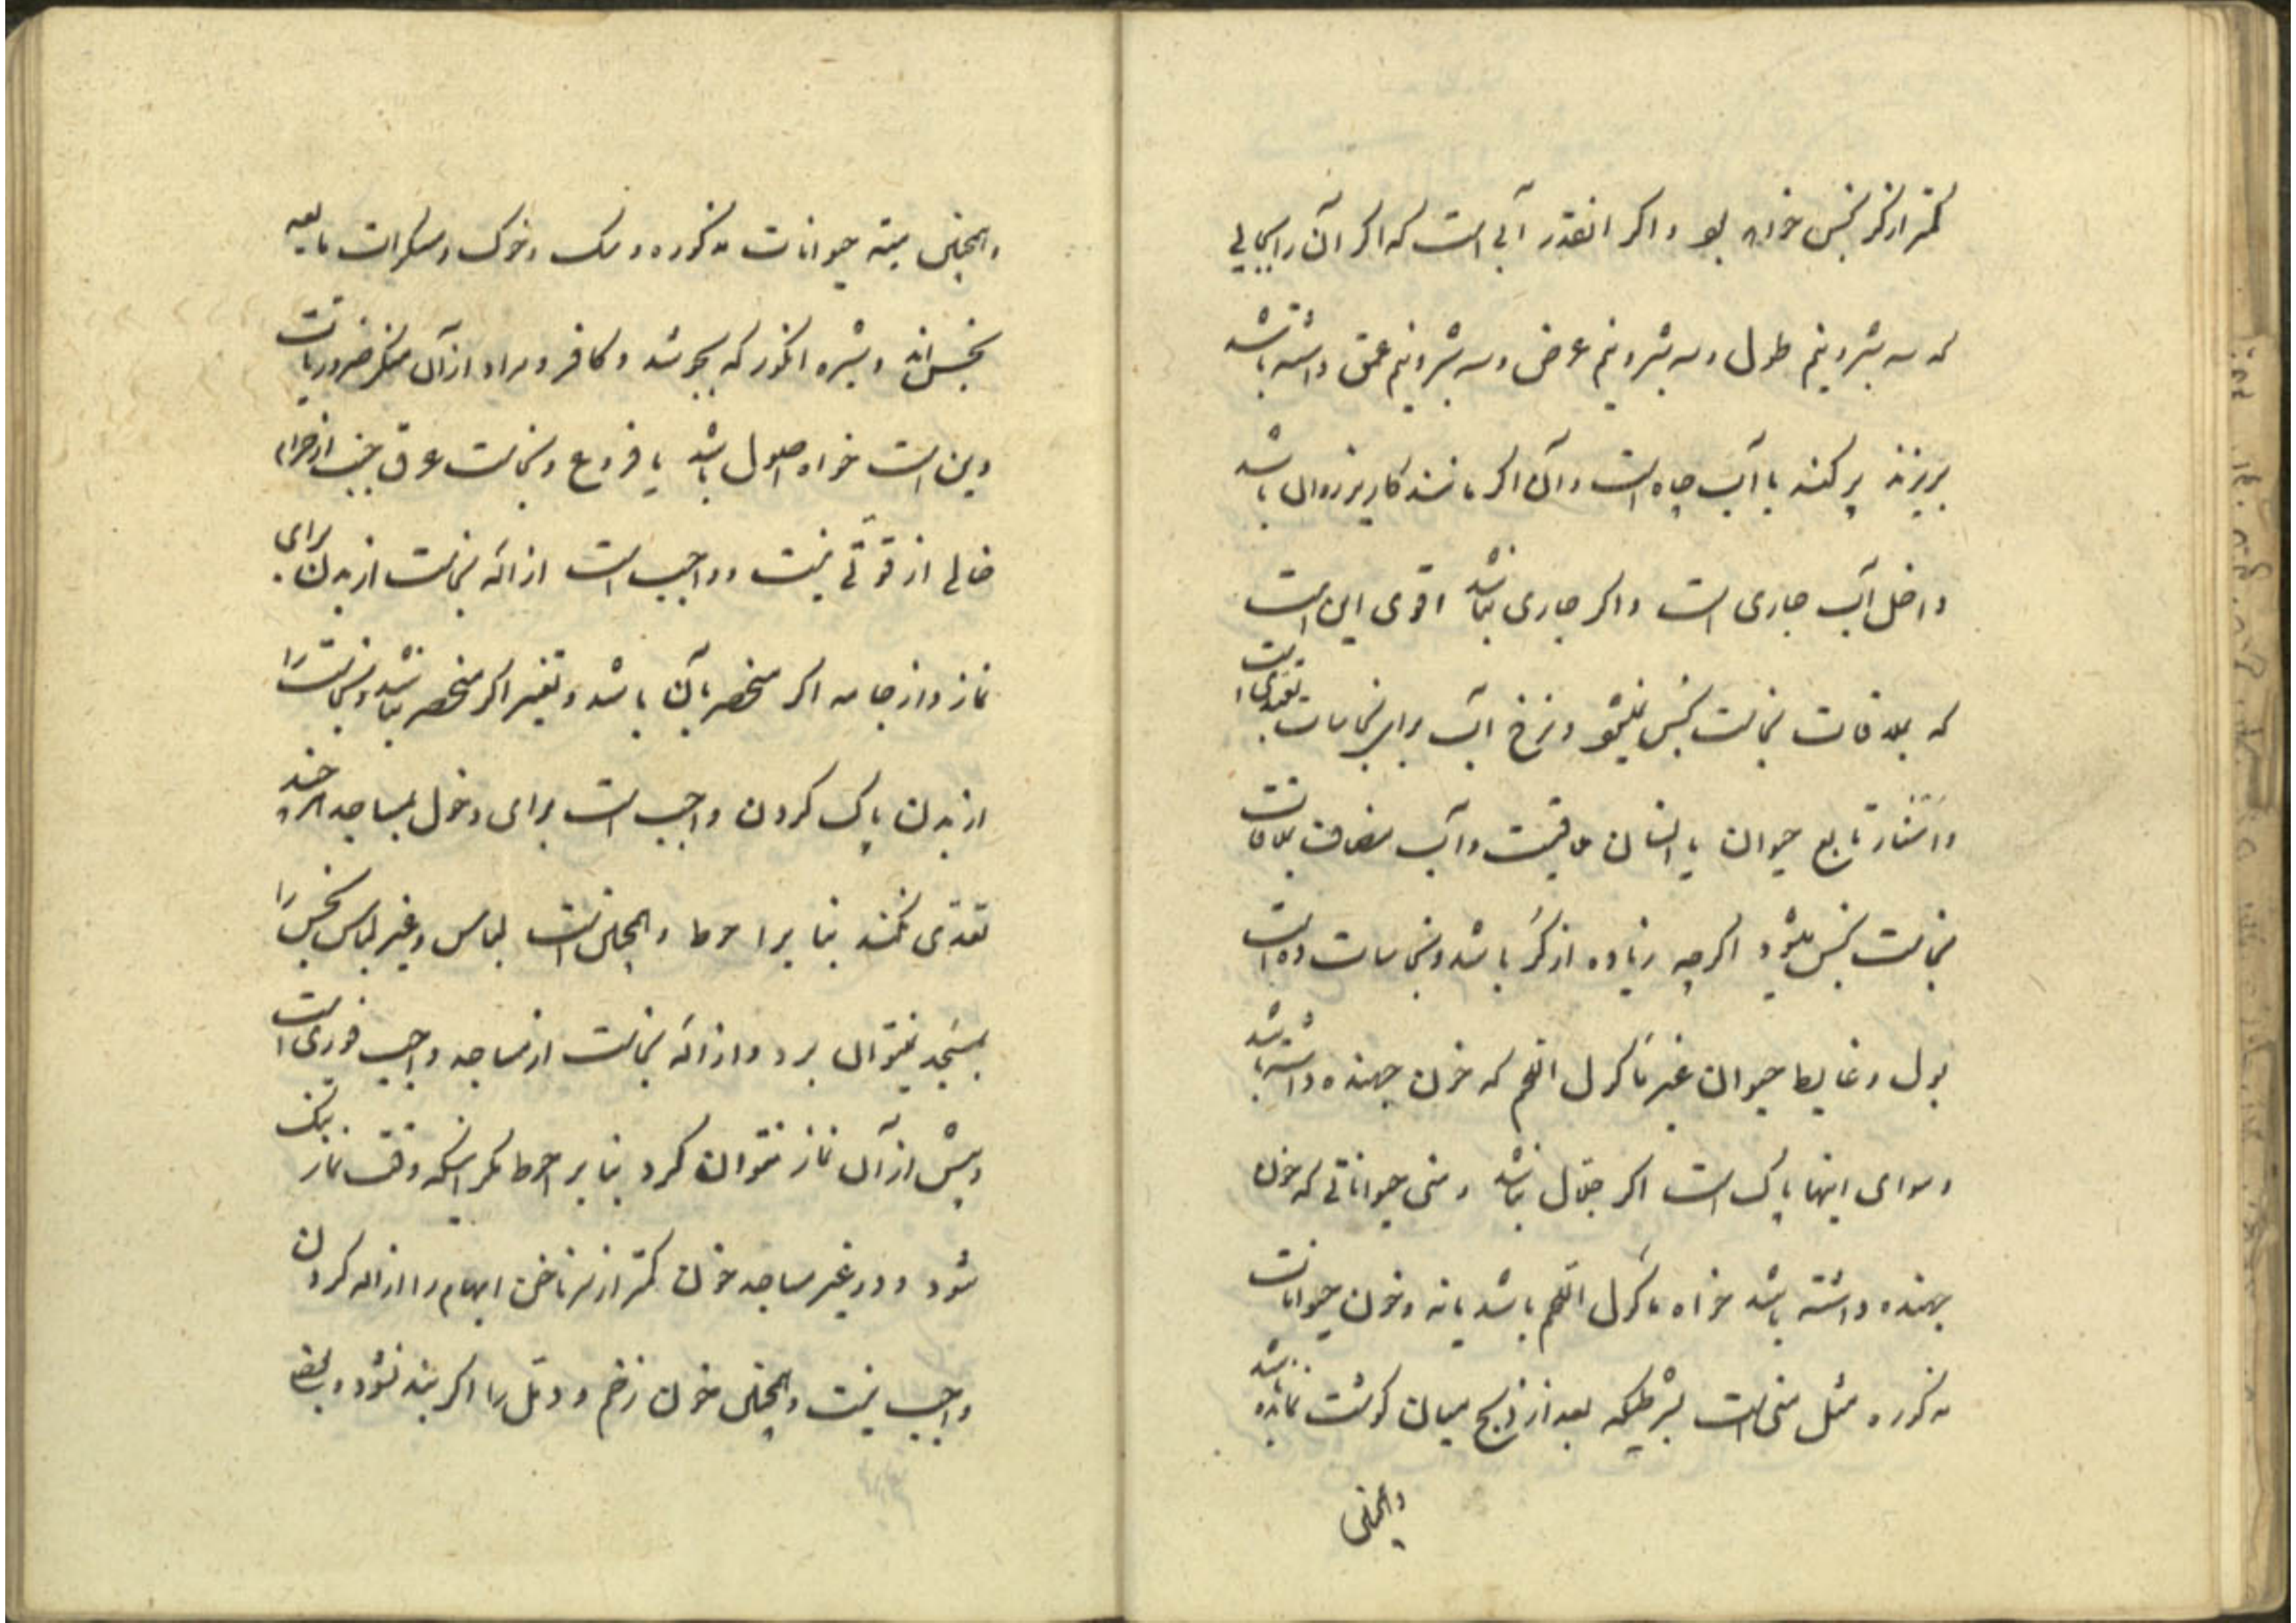 کمتر از کر نجس خواهد بود و اگر انقدر آبی است که اگر آن را بجایی
که سه شبر و نیم طول و سه شبر و نیم عرض و سه شبر و نیم عمق داشته باشد
بریزند پر کند یا آب چاه است و آن اگر مانند کاریز روان باشد
داخل آب جاری است و اگر جاری نباشد اقوی این است
که بملاقات نجاست نجس نمیشود و نزح آب برای نجاسات تعبدی است
تابع حیوان یا انسان و آب مضاف بملاقات
نجاست نجس میشود اگرچه زیاده از کر باشد و نجاسات ده است
بول و غایط حیوان غیر ماکول اللحم که خون جهنده داشته باشد
و سوای اینها پاک است اگر جلال نباشد و منی حیواناتی که خون
جهنده داشته باشد خواه ماکول اللحم باشد یا نه و خون حیوانات
مذکوره مثل منی است بشرطیکه بعد از ذبح میان گوشت نمانده باشد
وهمچنین
وهمچنین میته حیوانات مذکوره و سک و خوک و مسکرات مایعه
نجس‌اند و شیره انکور که بجوشد و کافر و مراد از آن منکر ضروریات
دین است خواه اصول باشد یا فروع و نجاست عرق جنب از حرام
خالی از قوّتی نیست و واجب است ازاله نجاست از بدن برای
نماز و از جامه اکر منحصر بآن باشد و تغییر اکر منحصر نباشد و نجاست را
از بدن پاک کردن واجب است برای دخول بمساجد هرچند
تعدّی نکند بنا بر احوط و همچنین است لباس و غیر لباس نجس را
بمسجد نمیتوان برد و ازاله نجاست از مساجد واجب فوری است
و پیش از آن نماز نمیتوان کرد بنا بر احوط مکر اینکه وقت نماز تنک
شود و در غیر مساجد خون کمتر از سر ناخن ابهام را ازاله کردن
واجب نیست و همچنین خون زخم و دمّل را اکر بند نشود